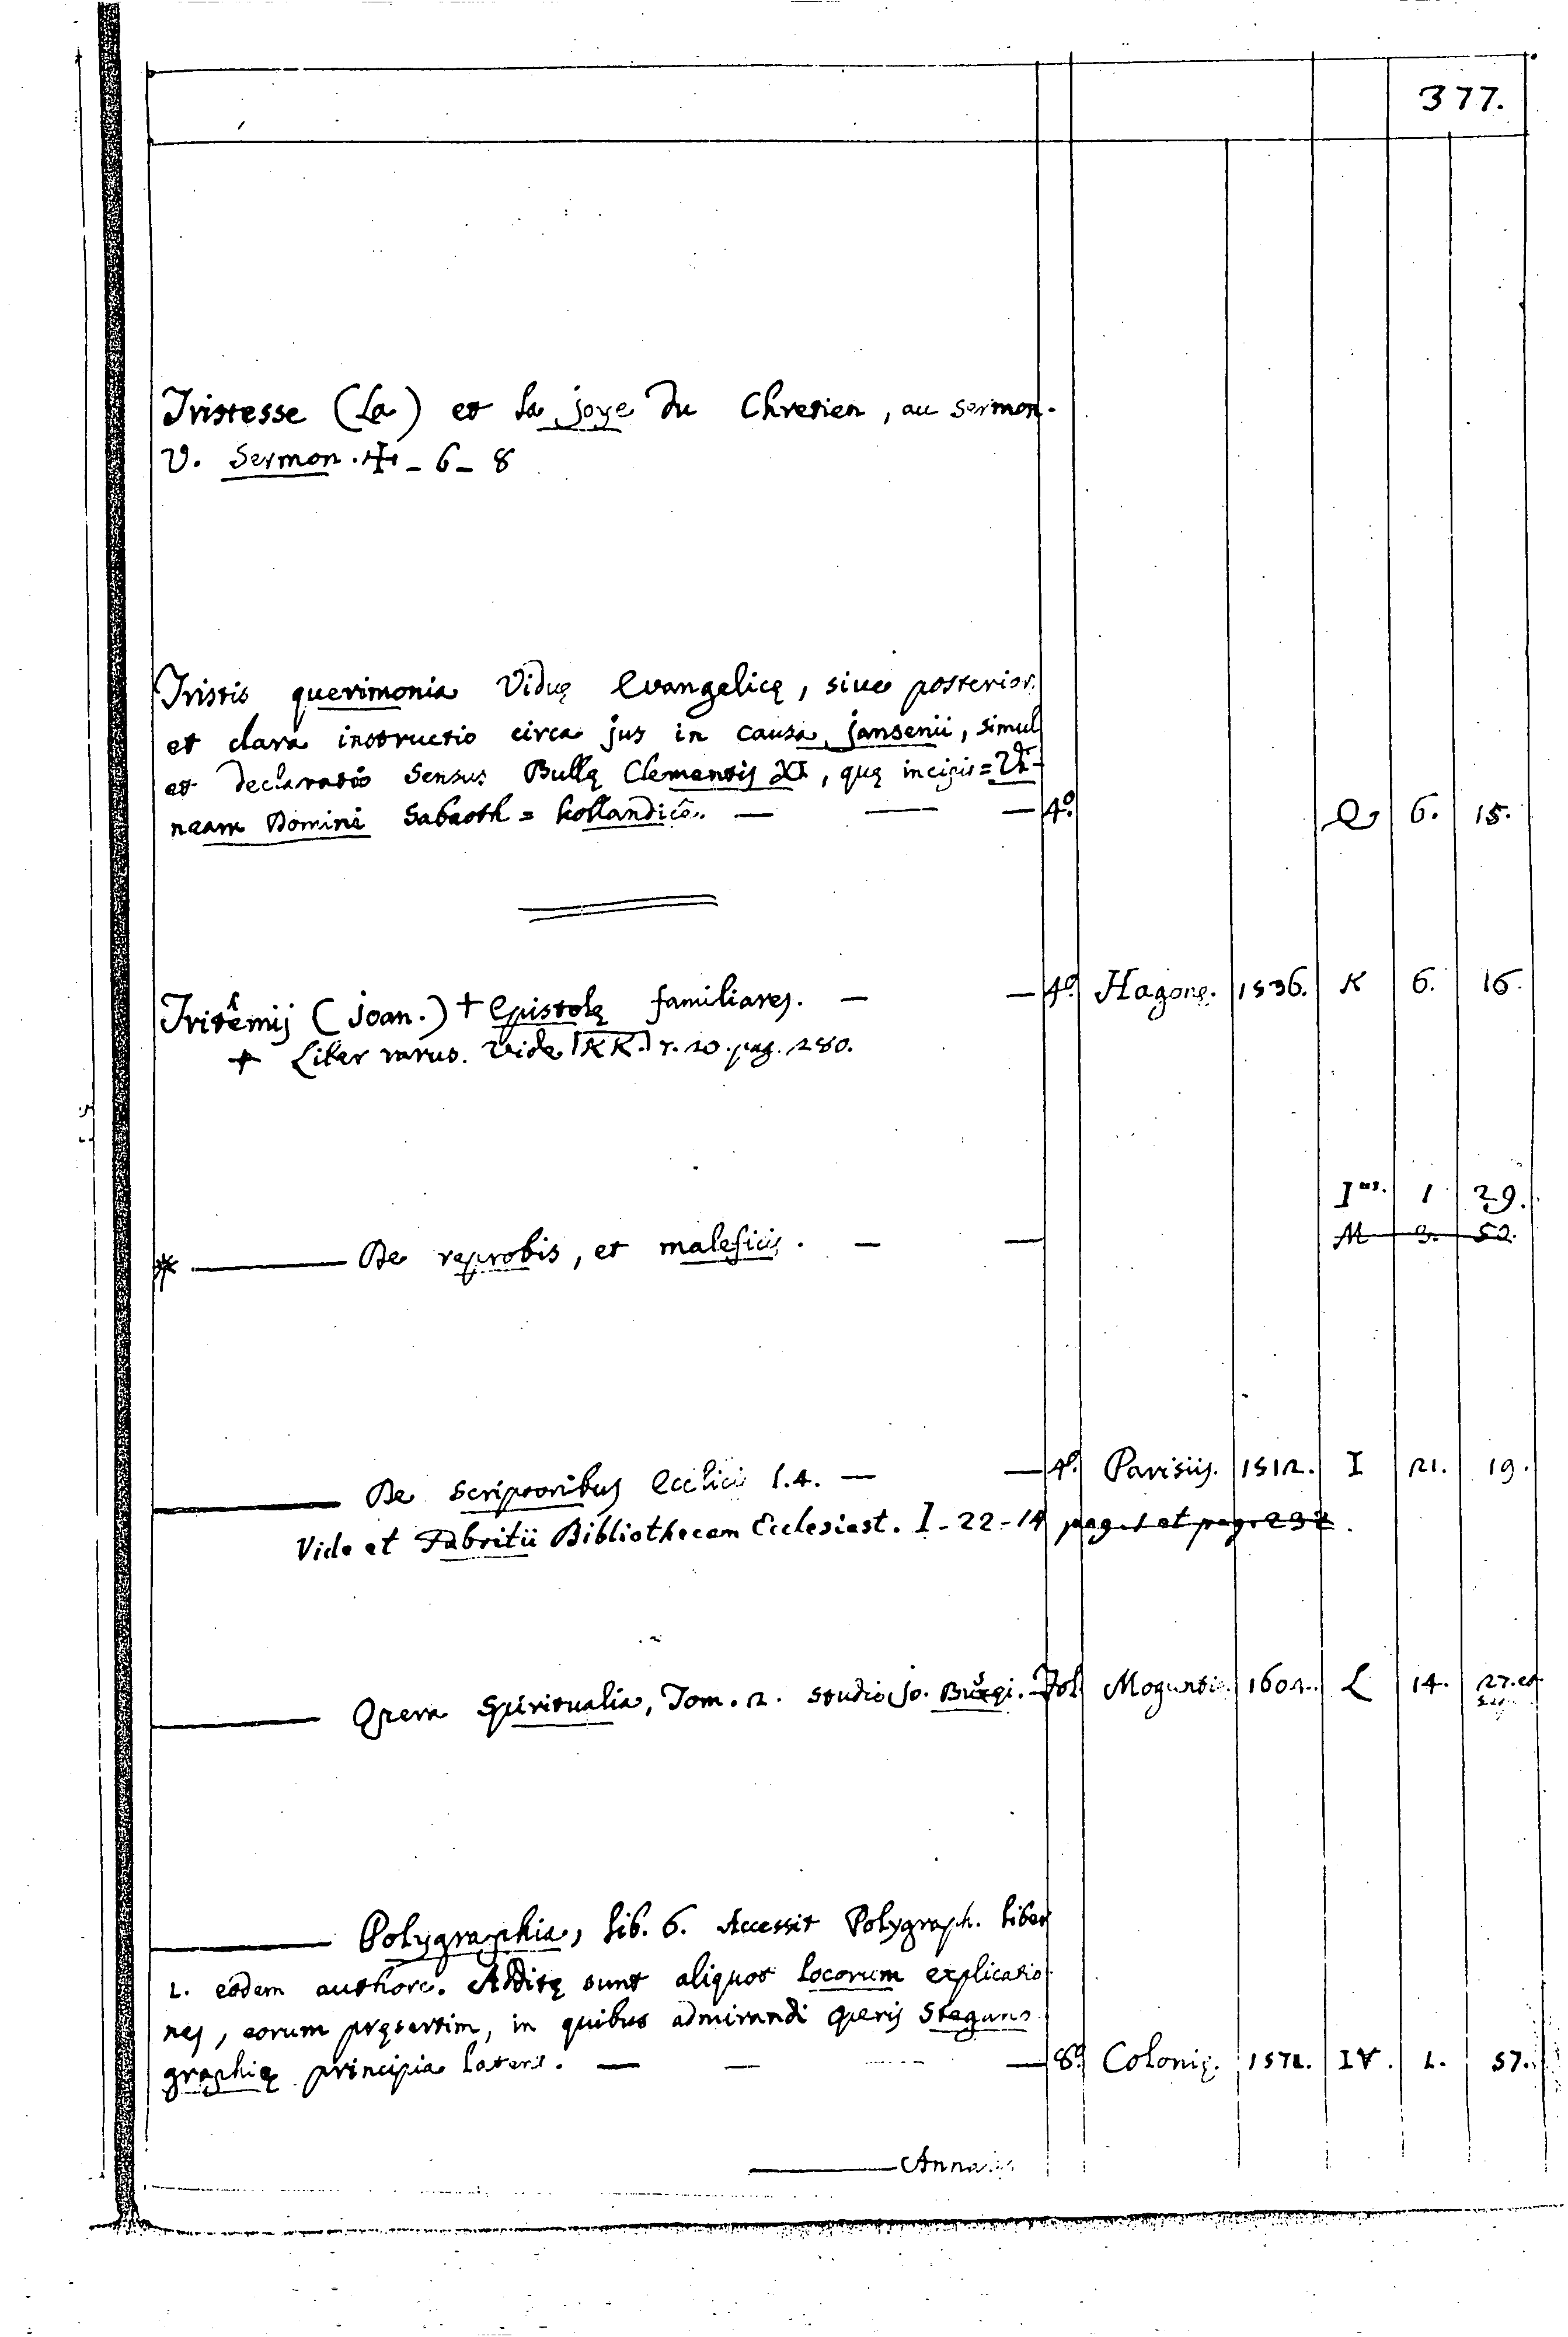 377.
Tristesse (La) et la joye du Chretien, au sermon.
V. Sermon. ✠ - 6 - 8
Tristis querimonia Viduę Evangelicę, siue posterior.
et clara instructio circa jus in causa jansenii, simul
et declaratio Sensus Bullę Clementis XI, quę incipis = Vi-
neam Domini Sabaoth = hollandicê. — — — 4º. Q 6. 15.
Trithemij (joan.) + Epistolę familiares. — — 4º. Hagonę. 1536. K 6. 16.
+ Liber rarus. Vide KK. r. 20. pag. 280.
I 1 29.
* ——— De reprobis, et maleficis. — — M 3. 52.
——— De scriptoribus Ecclicis l.4. — — 4º. Parisiis. 1512. I 21. 19.
Vide et Fabritii Bibliothecam Ecclesiast. I - 22 - 14
——— Opera Spiritualia, Tom. 2. studio jo. Busęi. Fol. Moguntię. 1604. L 14. 27. et
——— Polygraphia, lib. 6. Accessit Polygraph. liber
1. eôdem authore. Additę sunt aliquot locorum explicatio
nes, eorum pręsertim, in quibus admirandi operis Stegano
graphię principia latent. — — — 8º. Colonię. 1571. IV. 1. 57.
——— Annales